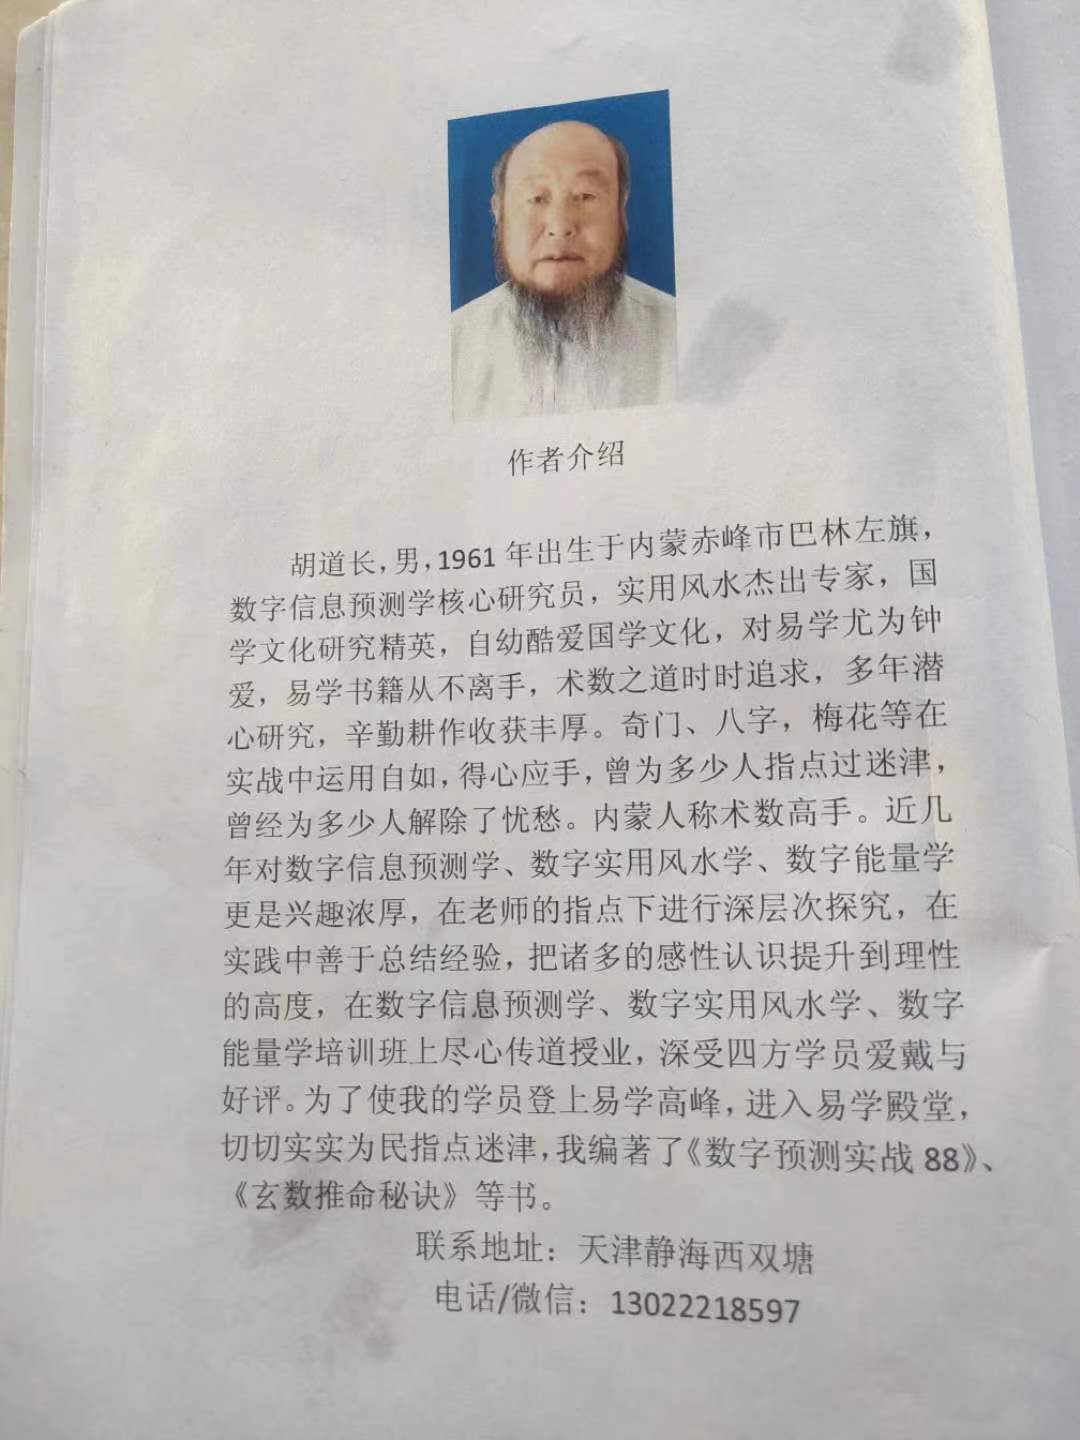 作者介绍
胡道长，男，1961 年出生于内蒙赤峰市巴林左旗，
数字信息预测学核心研究员，实用风水杰出专家，国
学文化研究精英，自幼酷爱国学文化，对易学尤为钟
爱，易学书籍从不离手，术数之道时时追求，多年潜
心研究，辛勤耕作收获丰厚。奇门、八字，梅花等在
实战中运用自如，得心应手，曾为多少人指点过迷津，
曾经为多少人解除了忧愁。内蒙人称术数高手。近几
年对数字信息预测学、数字实用风水学、数字能量学
更是兴趣浓厚，在老师的指点下进行深层次探究，在
实践中善于总结经验，把诸多的感性认识提升到理性
的高度，在数字信息预测学、数字实用风水学、数字
能量学培训班上尽心传道授业，深受四方学员爱戴与
好评。为了使我的学员登上易学高峰，进入易学殿堂，
切切实实为民指点迷津，我编著了《数字预测实战 88》、
《玄数推命秘诀》等书。
联系地址：天津静海西双塘
电话/微信：13022218597